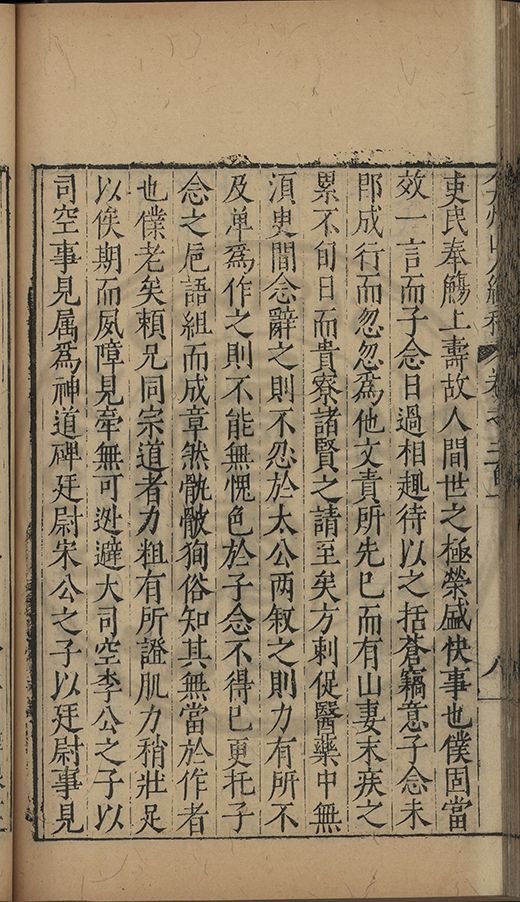 吏民奉觴上壽故人間世之極榮盛快事也僕固當
效一言而子念日過相趣待以之括蒼竊意子念未
即成行而忽忽為他文責所先巳而有山妻末疾之
累不旬日而貴寮諸賢之請至矣方剌促醫藥中無
湏臾間念辭之則不忍於太公兩敘之則力有所不
及單為作之則不能無愧色於子念不得巳更托子
念之巵語組而成章然骫骳狥俗知其無當於作者
也僕老矣頼兄同宗道者力粗有所證肌力稍壯足
以俟期而夙障見牽無可迯避大司空李公之子以
司空事見属為神道碑廷尉宋公之子以廷尉事見